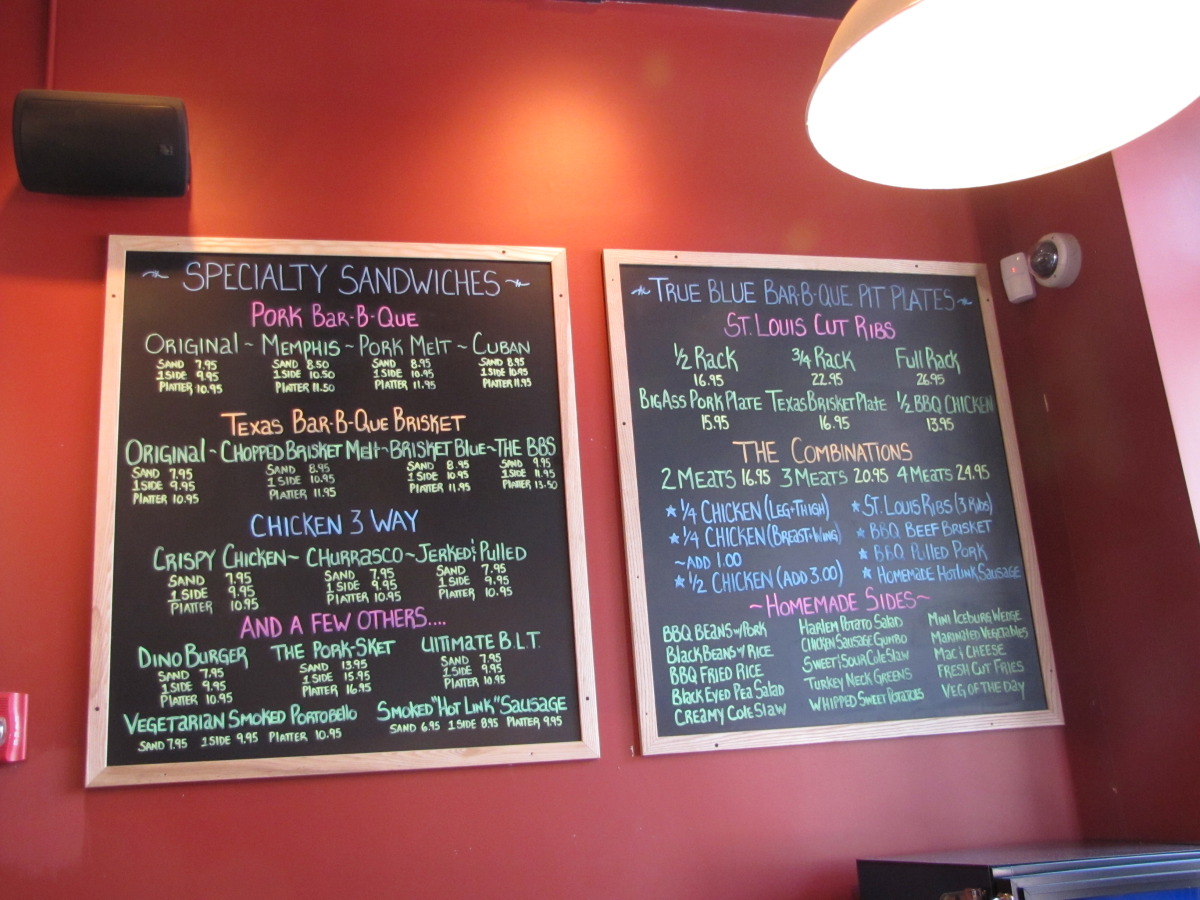 ~ SPECIALTY SANDWICHES ~
PORK BAR-B-QUE
ORIGINAL ~ MEMPHIS ~ PORK MELT ~ CUBAN
SAND 7.95 SAND 8.50 SAND 8.95 SAND 8.95
1 SIDE 9.95 1 SIDE 10.50 1 SIDE 10.95 1 SIDE 10.95
PLATTER 10.95 PLATTER 11.50 PLATTER 11.95 PLATTER 11.95
TEXAS BAR-B-QUE BRISKET
ORIGINAL ~ CHOPPED BRISKET MELT ~ BRISKET BLUE ~ THE BBS
SAND 7.95 SAND 8.95 SAND 8.95 SAND 9.95
1 SIDE 9.95 1 SIDE 10.95 1 SIDE 10.95 1 SIDE 11.95
PLATTER 10.95 PLATTER 11.95 PLATTER 11.95 PLATTER 13.50
CHICKEN 3 WAY
CRISPY CHICKEN ~ CHURRASCO ~ JERKED & PULLED
SAND 7.95 SAND 7.95 SAND 7.95
1 SIDE 9.95 1 SIDE 9.95 1 SIDE 9.95
PLATTER 10.95 PLATTER 10.95 PLATTER 10.95
AND A FEW OTHERS....
DINO BURGER THE PORK-SKET ULTIMATE B.L.T.
SAND 7.95 SAND 13.95 SAND 7.95
1 SIDE 9.95 1 SIDE 15.95 1 SIDE 9.95
PLATTER 10.95 PLATTER 16.95 PLATTER 10.95
VEGETARIAN SMOKED PORTOBELLO SMOKED "HOT LINK" SAUSAGE
SAND 7.95 1 SIDE 9.95 PLATTER 10.95 SAND 6.95 1 SIDE 8.95 PLATTER 9.95
~ TRUE BLUE BAR-B-QUE PIT PLATES ~
ST. LOUIS CUT RIBS
1/2 RACK 3/4 RACK FULL RACK
16.95 22.95 26.95
BIG ASS PORK PLATE TEXAS BRISKET PLATE 1/2 BBQ CHICKEN
15.95 16.95 13.95
THE COMBINATIONS
2 MEATS 16.95 3 MEATS 20.95 4 MEATS 24.95
★ 1/4 CHICKEN (LEG+THIGH) ★ ST. LOUIS RIBS (3 RIBS)
★ 1/4 CHICKEN (BREAST+WING) ★ BBQ BEEF BRISKET
~ ADD 1.00 ★ BBQ PULLED PORK
★ 1/2 CHICKEN (ADD 3.00) ★ HOMEMADE HOT LINK SAUSAGE
~ HOMEMADE SIDES ~
BBQ BEANS w/ PORK HARLEM POTATO SALAD MINI ICEBURG WEDGE
BLACK BEANS w/ RICE CHICKEN SAUSAGE GUMBO MARINATED VEGETABLES
BBQ FRIED RICE SWEET & SOUR COLE SLAW MAC & CHEESE
BLACK EYED PEA SALAD TURKEY NECK GREENS FRESH CUT FRIES
CREAMY COLE SLAW WHIPPED SWEET POTATOES VEG OF THE DAY